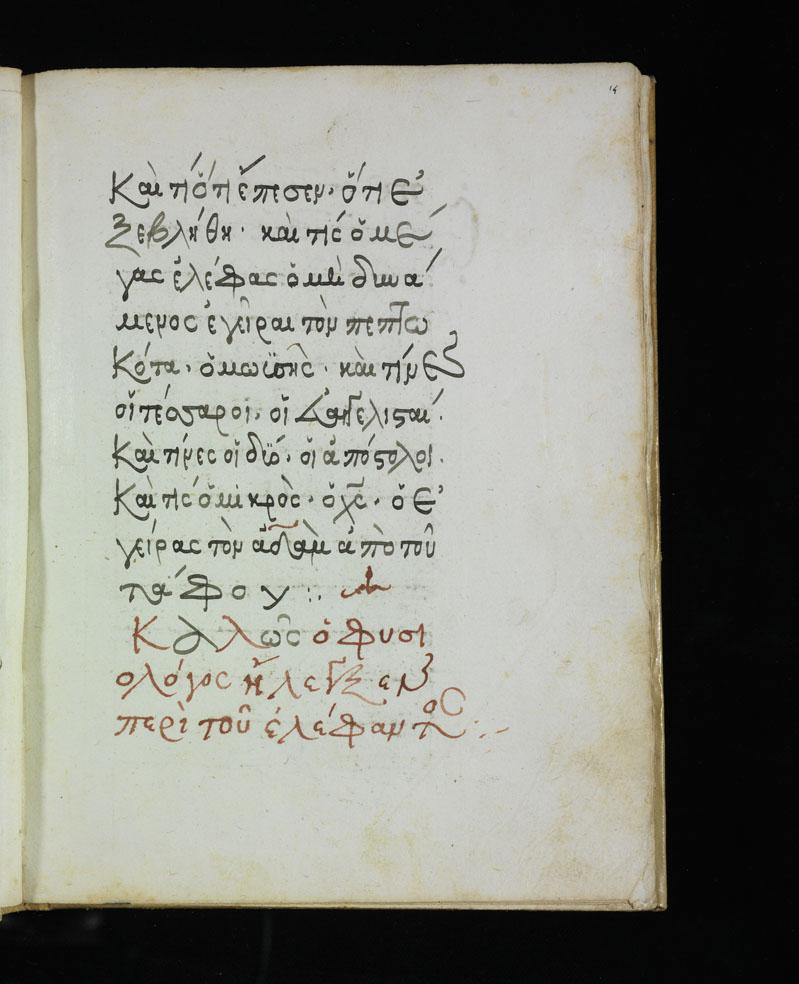 14
Καὶ τί ὅτι ἔπεσεν· ὅτι ἐ
ξεβλήθη· καὶ τίς ὁ μέ
γας ἐλέφας ὁ μὴ δυνά
μενος ἐγεῖραι τὸν πεπτω
κότα· ὁ μωϊσῆς· καὶ τίνες
οἱ τέσσαροι· οἱ ἐυαγγελισταί·
Καὶ τίνες οἱ δύο· οἱ ἀπόστολοι·
Καὶ τίς ὁ μικρὸς· ὁ χς· ὁ ἐ
γείρας τὸν ἀδὰμ ἀπὸ τοῦ
τάφου :·
Καλῶς ὁ φυσι
ολόγος ἔλεξεν
περὶ τοῦ ἐλέφαντος